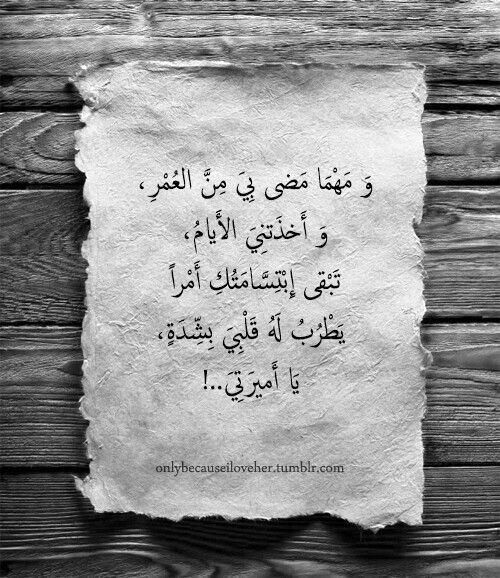 وَ مَهْمَا مَضى بِيَ مِنَّ العُمْرِ،
وَ أَخذَتنِيَ الأَيامُ،
تَبْقى إِبْتِسَّامَتُكِ أَمْراً
يَطْرُبُ لَهُ قَلْبِيَ بِشِّدَةٍ،
يَا أَميرَتِيَ..!
onlybecauseiloveher.tumblr.com